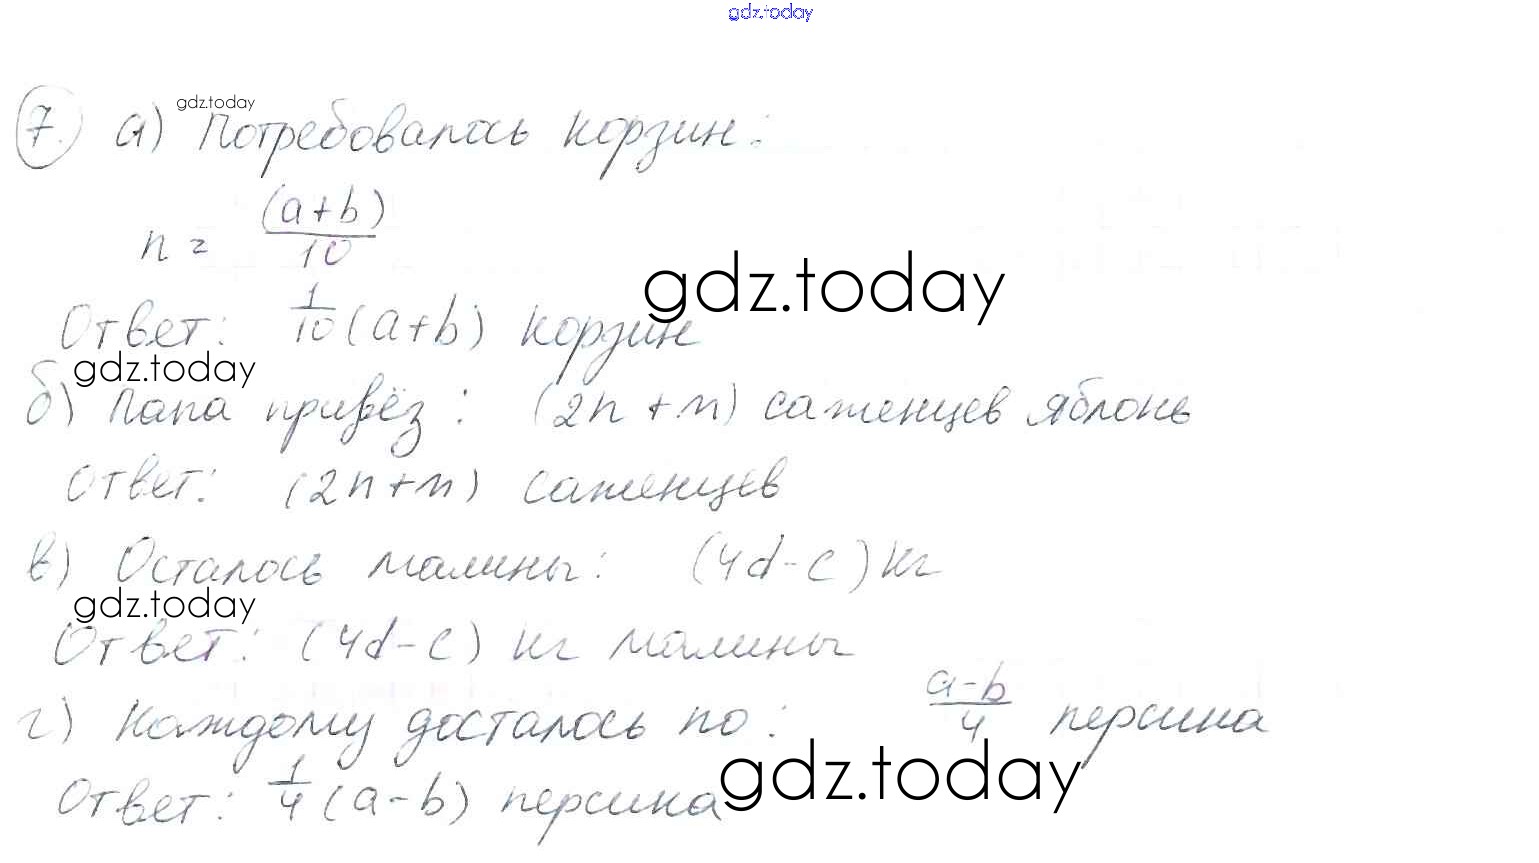 gdz.today
7. а) Потребовалось корзин:
gdz.today
n = (a+b)/10
gdz.today
Ответ: 1/10 (a+b) корзин
gdz.today
б) Папа привёз: (2n+m) саженцев яблонь
Ответ: (2n+m) саженцев
в) Осталось малины: (4d-c) кг
gdz.today
Ответ: (4d-c) кг малины
г) Каждому досталось по: a-b/4 персика
gdz.today
Ответ: 1/4 (a-b) персика